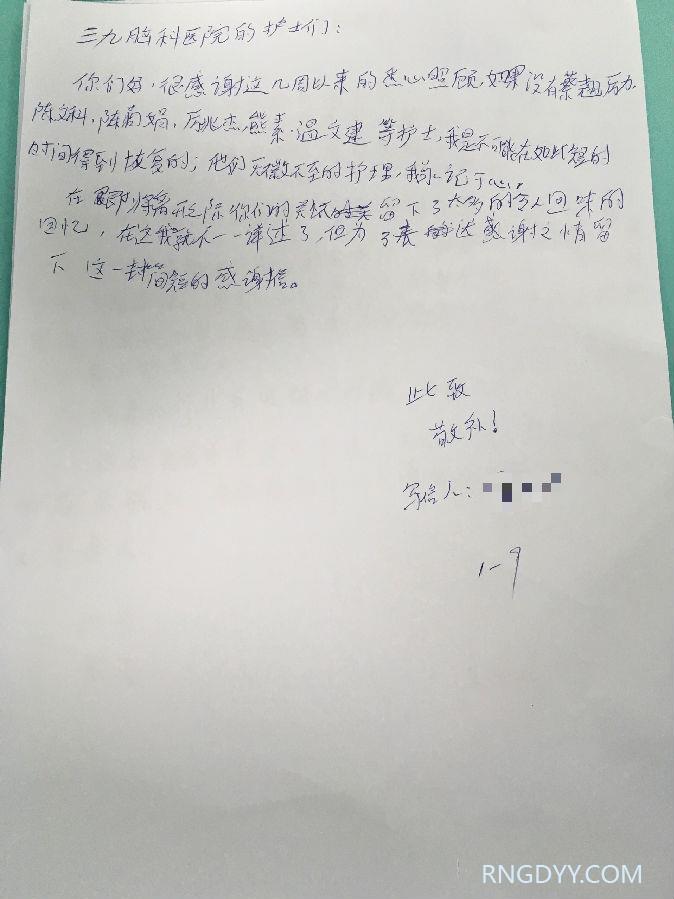 三九脑科医院的护士们:
你们好,很感谢这几周以来的悉心照顾,如果没有蔡
陈文科、陈菊娟、 杰、熊素、温文建等护士,我是不可能在如此短的
时间得到恢复的;他们无微不至的护理,我永记于心。
在即将离别之际,你们的 留下了太多的令人回味的
回忆,在这我就不一一详述了,但为了表达感谢之情留
下这一封简短的感谢信。
此致
敬礼!
写信人:
1-9
RNGDYY.COM